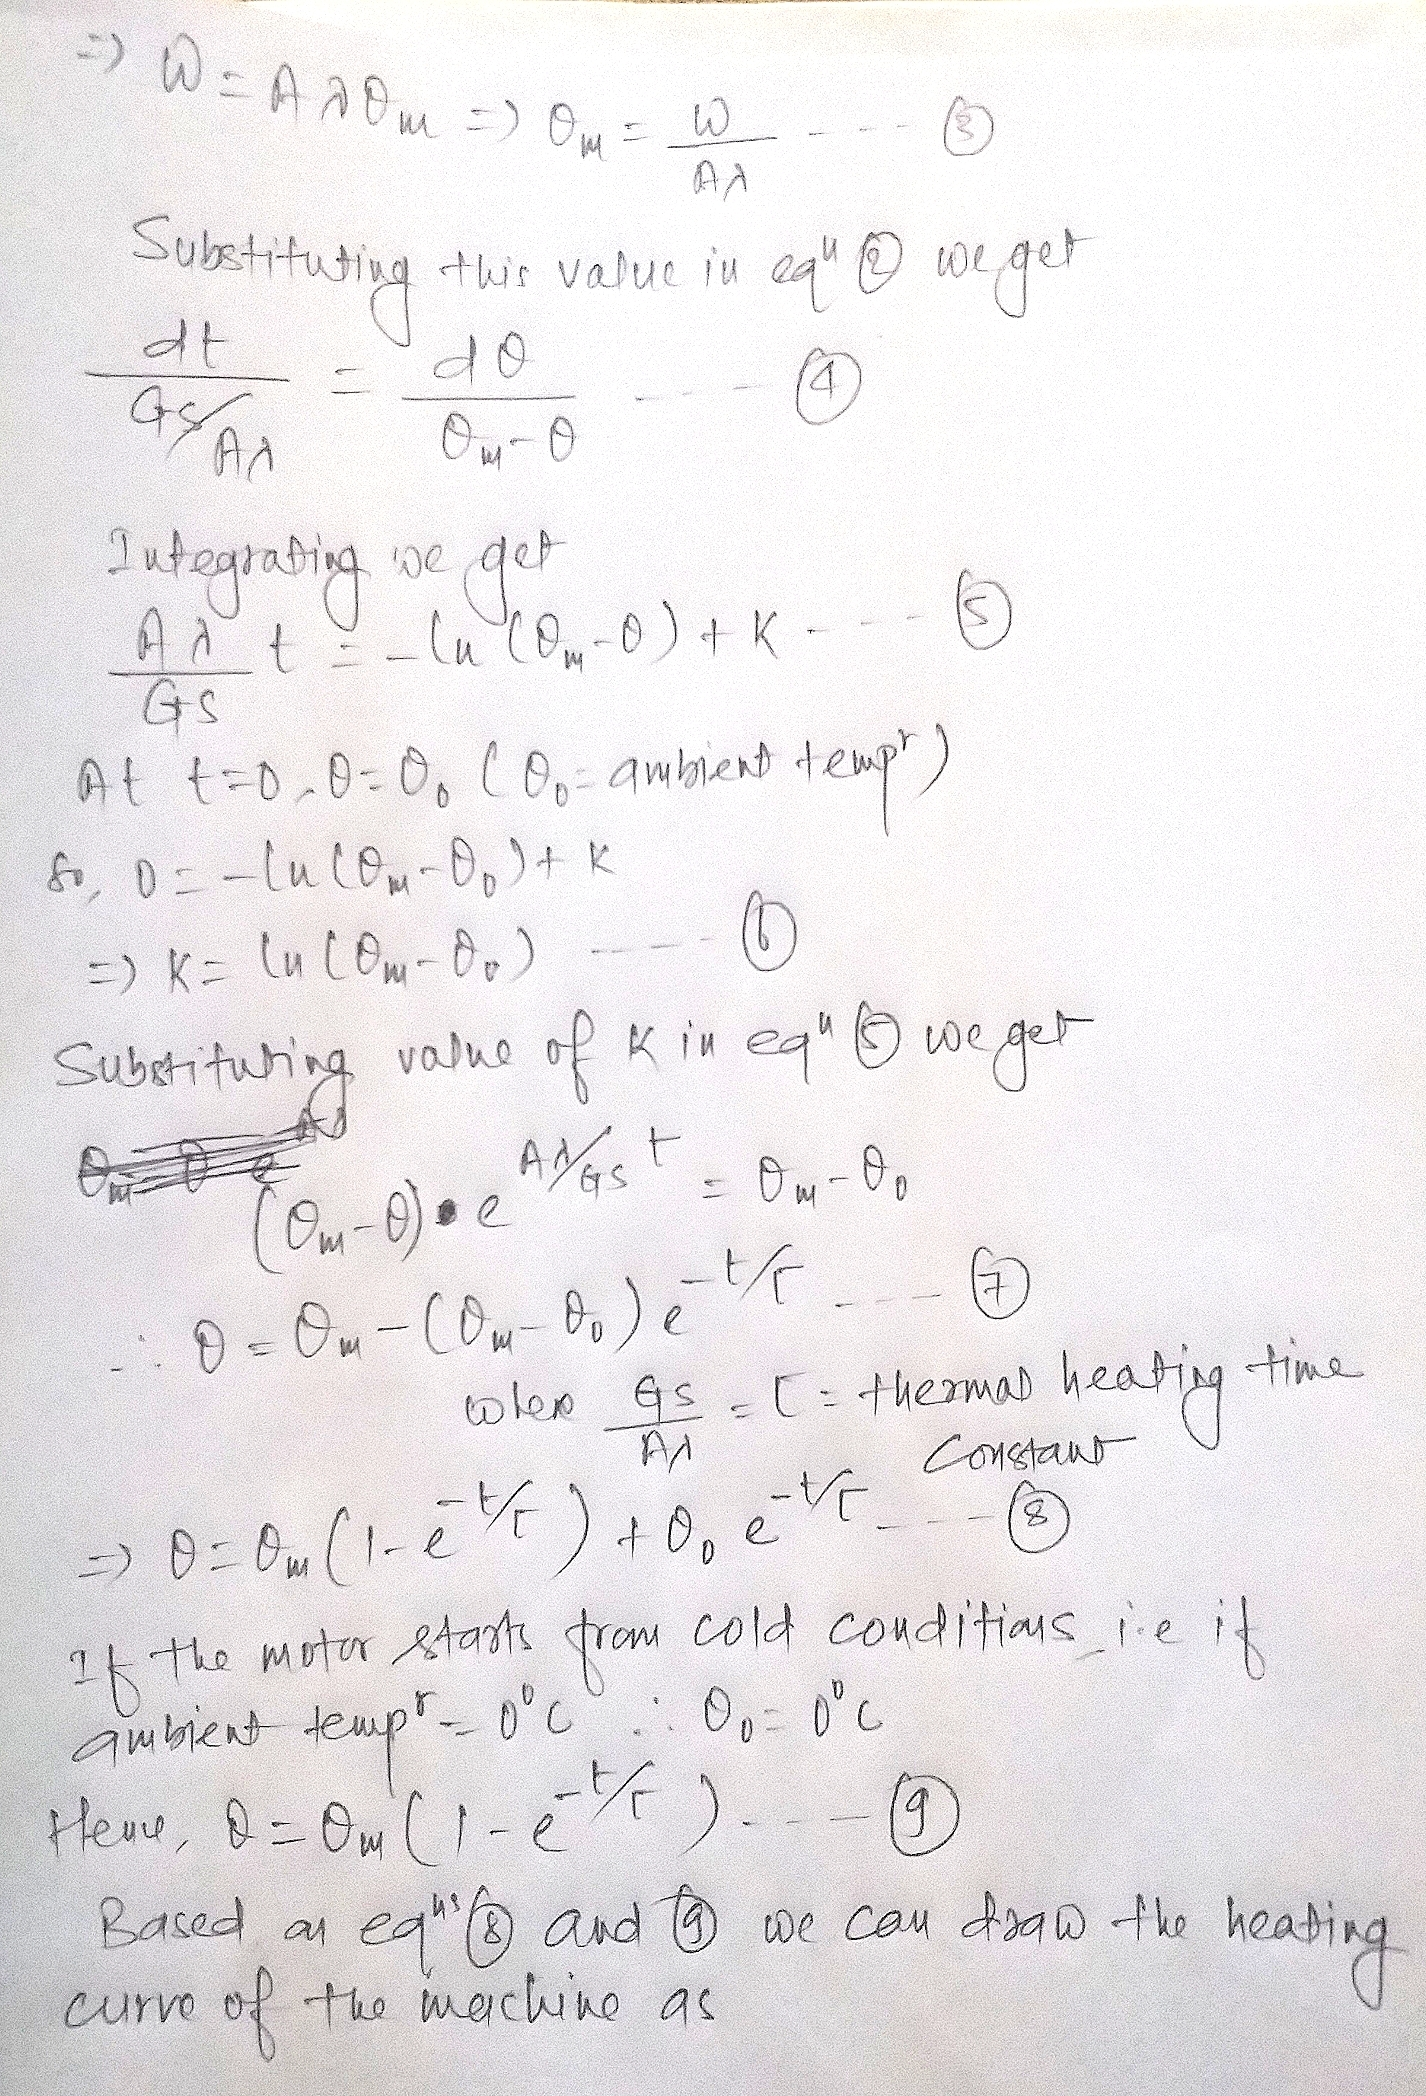 => W = Aλθm => θm = W/Aλ ---- (3)
Substituting this value in eqⁿ (2) we get
dt/(GS/Aλ) = dθ/(θm-θ) ---- (4)
Integrating we get
Aλ/GS t = -ln(θm-θ) + K ---- (5)
At t=0, θ=θ₀ (θ₀= ambient tempʳ)
So, 0 = -ln(θm-θ₀) + K
=> K = ln(θm-θ₀) ---- (6)
Substituting value of K in eqⁿ (5) we get
(θm-θ)·e^(Aλ/GS t) = θm-θ₀
∴ θ = θm-(θm-θ₀)e^(-t/τ) ---- (7)
where GS/Aλ = τ = thermal heating time
constant
=> θ = θm(1-e^(-t/τ)) + θ₀ e^(-t/τ) ---- (8)
If the motor starts from cold conditions i.e if
ambient tempʳ = 0°C ∴ θ₀ = 0°C
Hence, θ = θm(1-e^(-t/τ)) ---- (9)
Based on eqⁿˢ (8) and (9) we can draw the heating
curve of the machine as